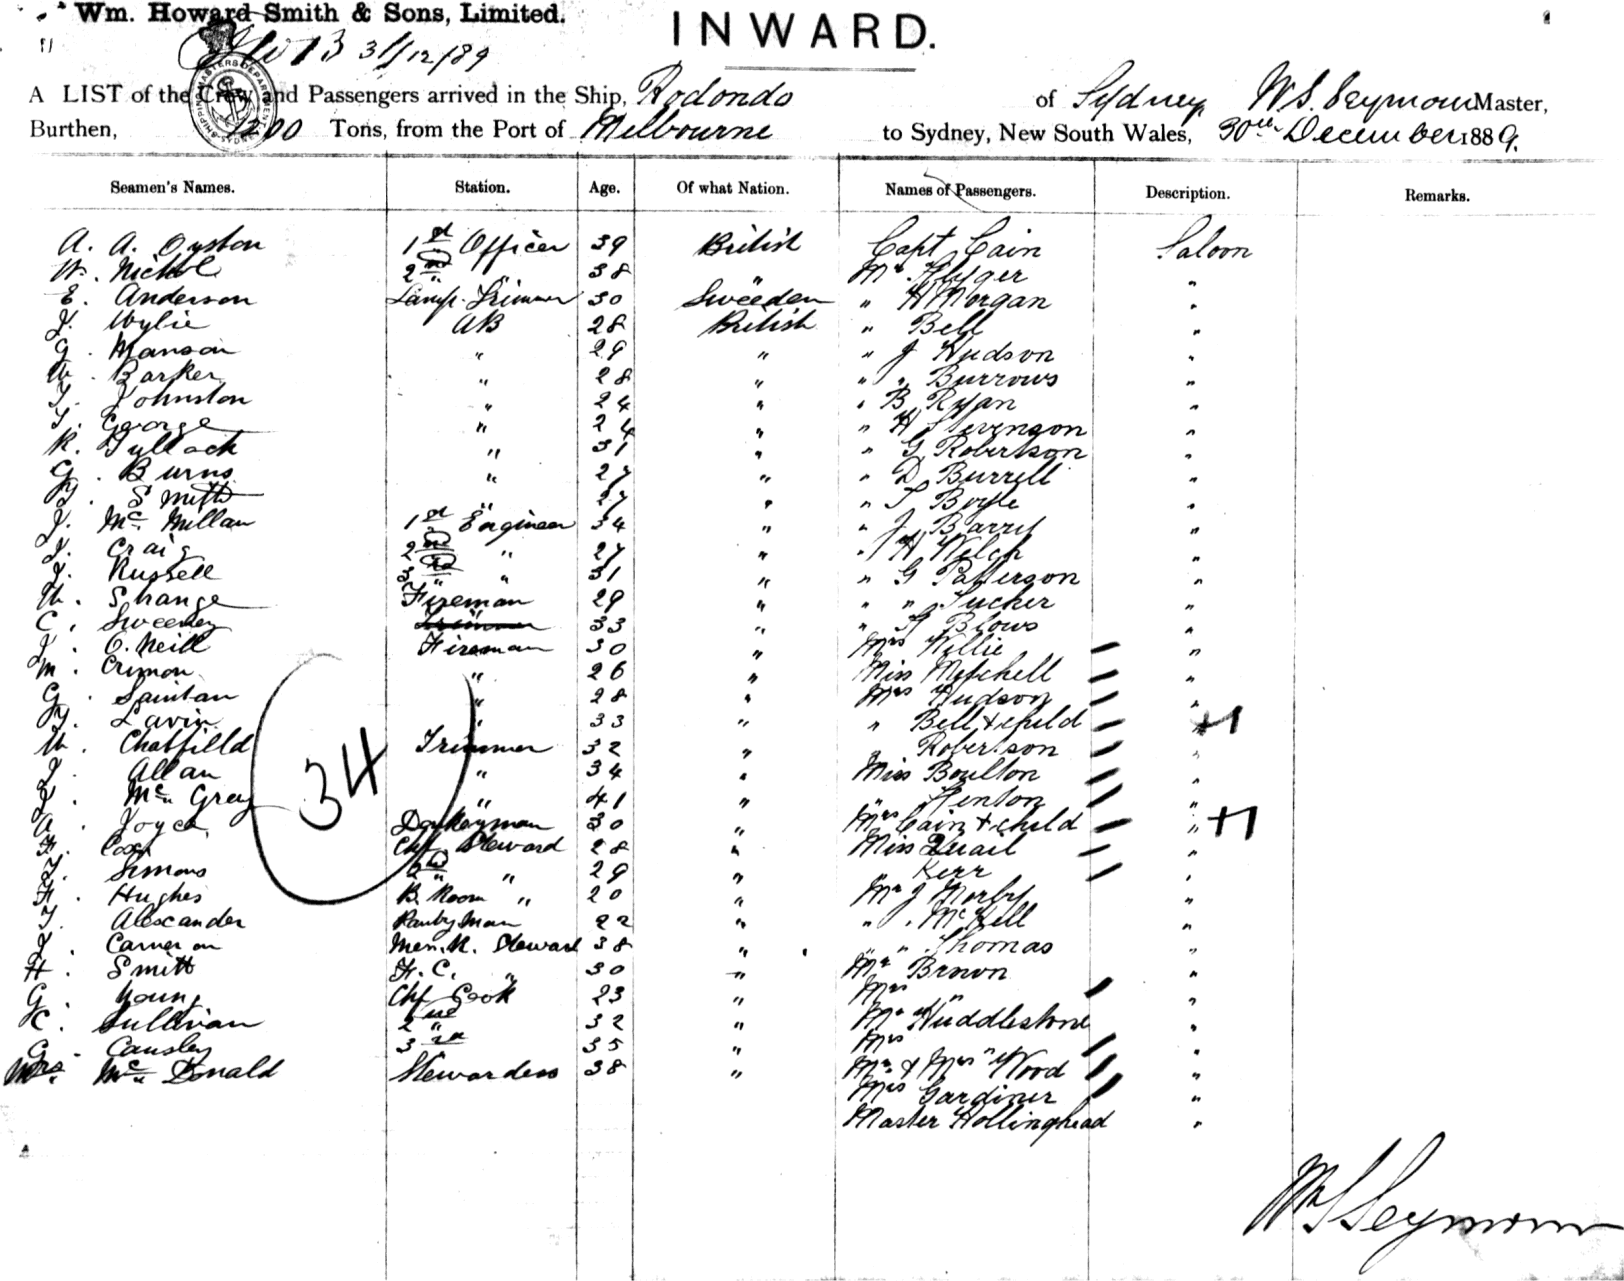 Wm. Howard Smith & Sons, Limited.
INWARD.
31/12/89
A LIST of the Crew and Passengers arrived in the Ship, Rodondo of Sydney W S. Seymour Master,
Burthen, 1200 Tons, from the Port of Melbourne to Sydney, New South Wales, 30th December 1889.
Seamen's Names. Station. Age. Of what Nation. Names of Passengers. Description. Remarks.
A. A. Oyston 1st Officer 39 British Capt Cain Saloon
W. Nichol 2nd " 38 " Mr. "
E. Anderson Lamp Trimmer 30 Sweeden " H Morgan "
J. Wylie AB 28 British " Bell "
G. Manson " 29 " " J Hudson "
W. Barker " 28 " " " Burrows "
J. Johnston " 24 " " B Ryan "
T. George " 24 " " H Stevenson "
R. Tullock " 31 " " G Robertson "
G. Burns " 27 " " D Burrell "
Smith " 27 " " T Boyle "
J. Mc Millan 1st Engineer 34 " " J Barry "
J. Craig 2nd " 27 " " H Welch "
J. Russell 3rd " 31 " " G Patterson "
W. Strange Fireman 29 " " " Tucker "
C. Sweeney Trimmer 33 " " Blows "
J. O.Neill Fireman 30 " Mrs Willie "
M. Crimon " 26 " Miss Mitchell "
G. Saintan " 28 " Mrs Hudson "
Lavin " 33 " " Bell & child " +1
W. Chatfield Trimmer 32 " Robertson "
J. Allan " 34 " Miss Boulton "
J. Mc Grey " 41 " " Fenton "
A. Joyce Donkeyman 30 " Mrs Cain & child " +1
F. Cook Chf Steward 28 " Miss Quail "
T. Simons 2nd " " 29 " Kerr "
H. Hughes B. Room " 20 " Mr J Morby "
T. Alexander Pantry Man 22 " " " McKell "
J. Cameron Mess. R. Steward 38 " " " Thomas "
H. Smith F. C. " 30 " Mr Brown "
G. Young Chf Cook 23 " Mrs " "
C. Sullivan 2nd " 32 " Mr Huddlestone "
G. Causley 3rd 35 " Mrs " "
Mrs. Mc Donald Stewardess 38 " Mr & Mrs Wood "
Mrs Gardiner "
Master Hollinghead "
34
Wm S Seymour